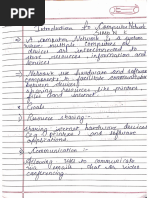 Introduction to Computer Network
⇒ A computer Network is a system
where multiple computers or
devices are interconnected to
share resources, infrastructure and
devices
⇒ Network use hardware and software
components to
devices
sharing resources, like picture
files cloud internet
Goals
Resource sharing:-
Sharing internet hardware devices
(e.g. printers) and software
applications.
Communication:-
Allowing users to communicate
via emails chat with video
conferencing